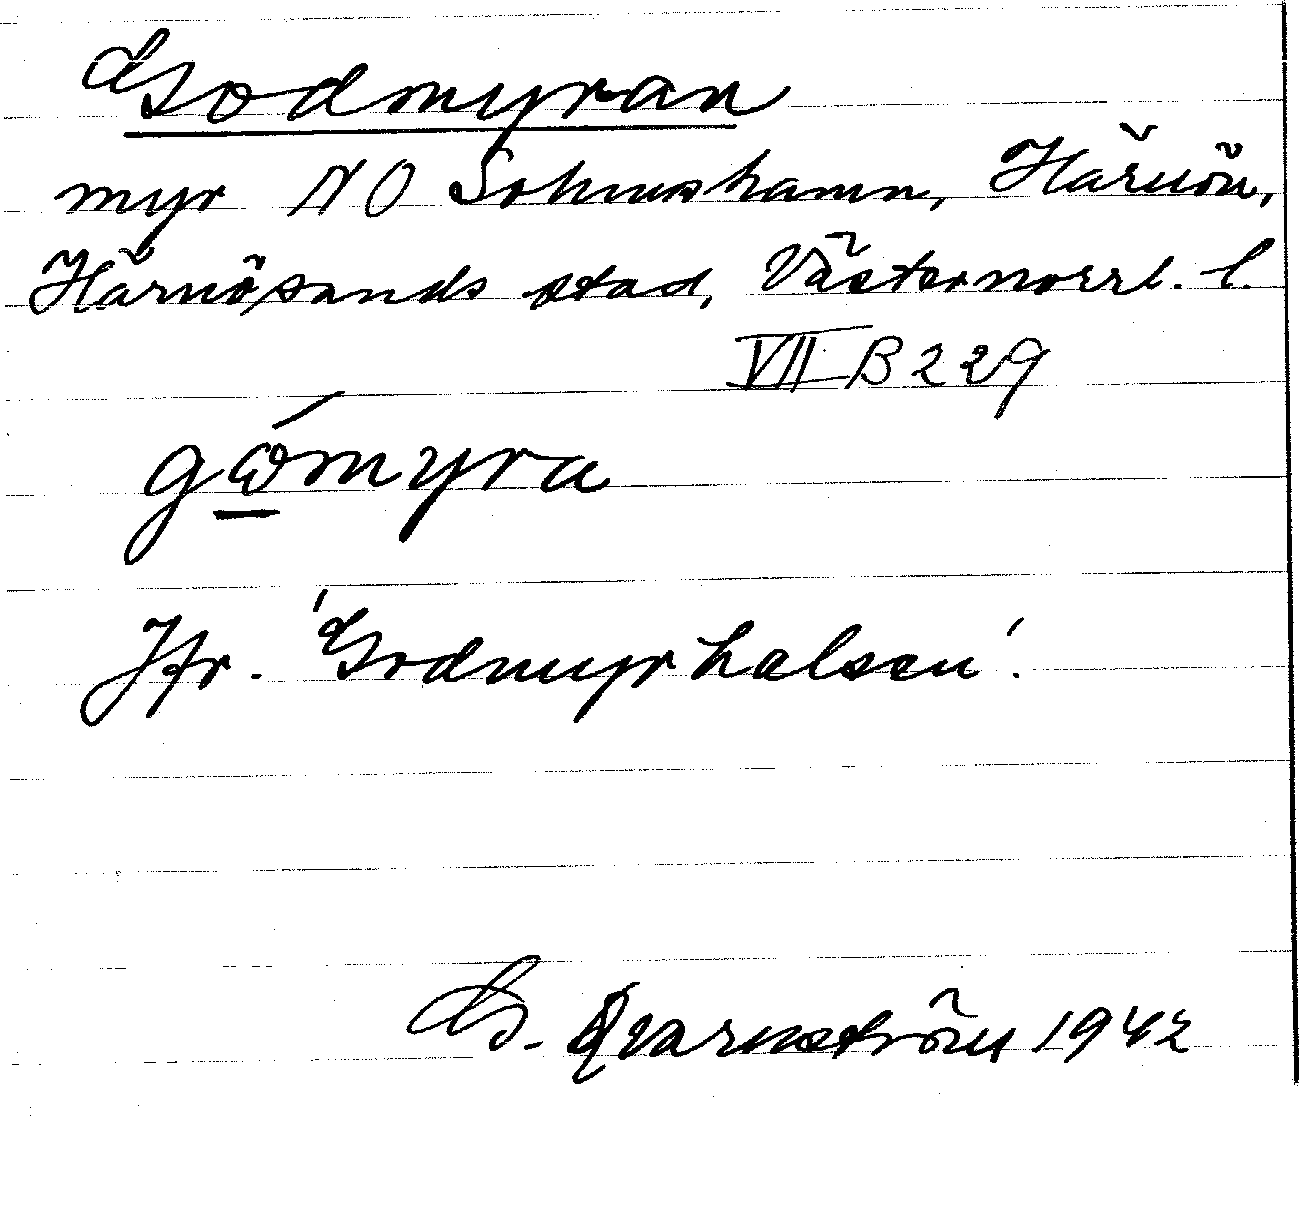 Godmyran
myr NO Solumshamn, Härnön,
Härnösands stad, Västernorrl. l.
VII B 229
gώ̲myra
Jfr. 'Godmyrhalsen'.
G. Qvarnström 1942